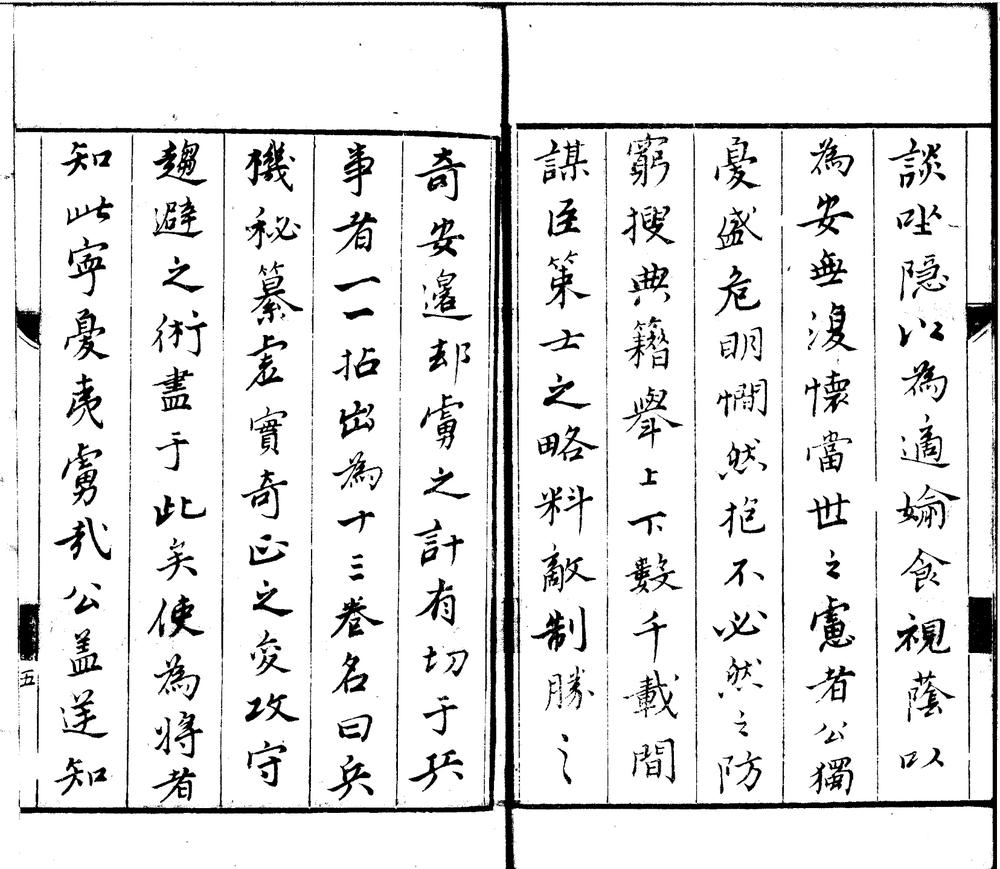 談吐隠以為適媮食視蔭以
為安無復懷當世之慮者公獨
憂盛危明憪然抱不必然之防
窮搜典籍舉上下數千載間
謀臣策士之略料敵制勝之
奇安邊却虜之計有切于兵
事者一一拈出為十三卷名曰兵
機秘纂虛實奇正之变攻守
趨避之術盡于此矣使為將者
知此寧憂夷虜哉公盖逆知
五